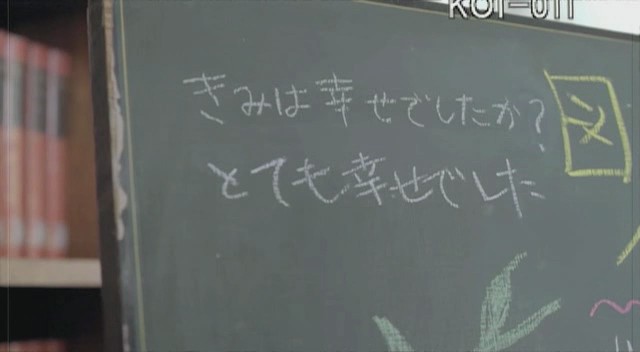 KOI-011
きみは幸せでしたか?
図
とても幸せでした